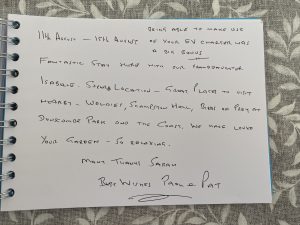 BEING ABLE TO MAKE USE
11TH AUGUST - 15TH AUGUST OF YOUR EV CHARGER WAS
A BIG BONUS
FANTASTIC STAY HERE WITH OUR GRANDDAUGHTER
ISABELLE. SUPERB LOCATION - GREAT PLACES TO VISIT
NEARBY - HELMSLEY, SCAMPSTON HALL, BIRDS OF PREY AT
DUNCOMBE PARK AND THE COAST. WE HAVE LOVED
YOUR GARDEN - SO RELAXING.
MANY THANKS SARAH
BEST WISHES PAUL & PAT